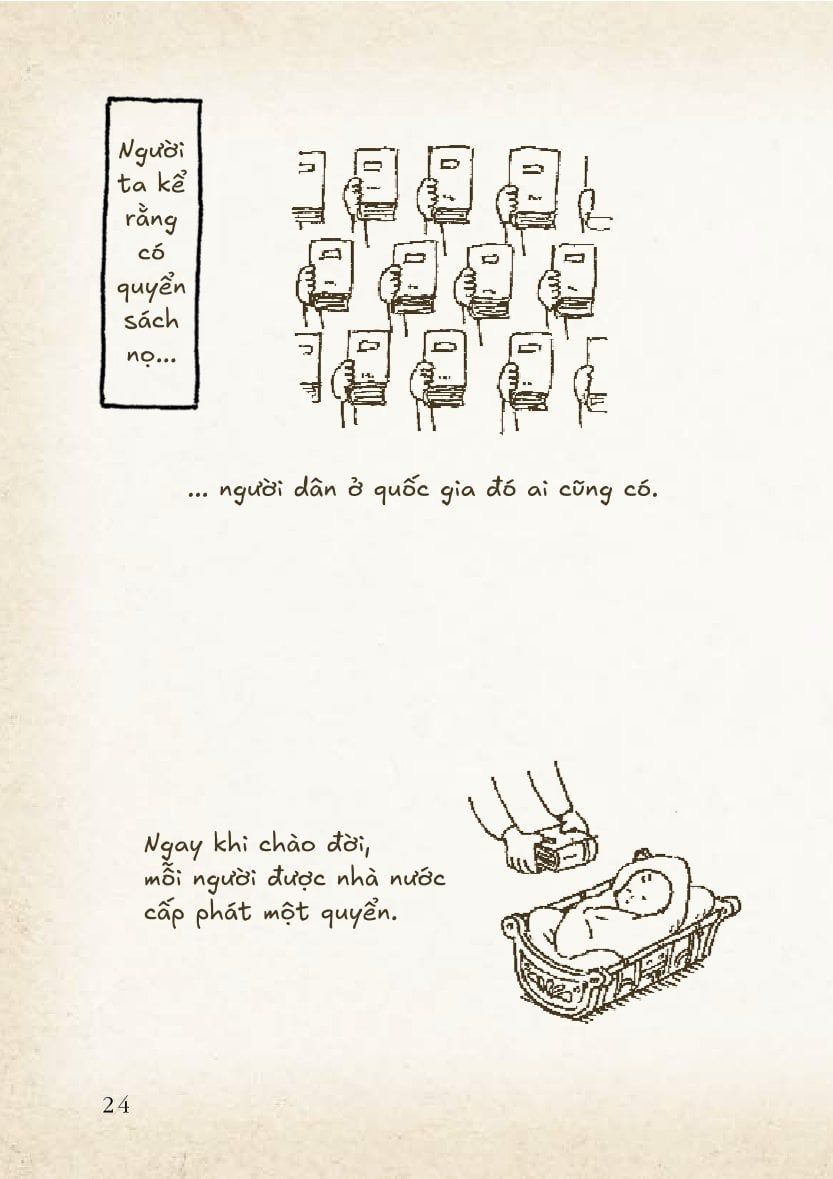 Người
ta kể
rằng
có
quyển
sách
nọ...
... người dân ở quốc gia đó ai cũng có.
Ngay khi chào đời,
mỗi người được nhà nước
cấp phát một quyển.
24